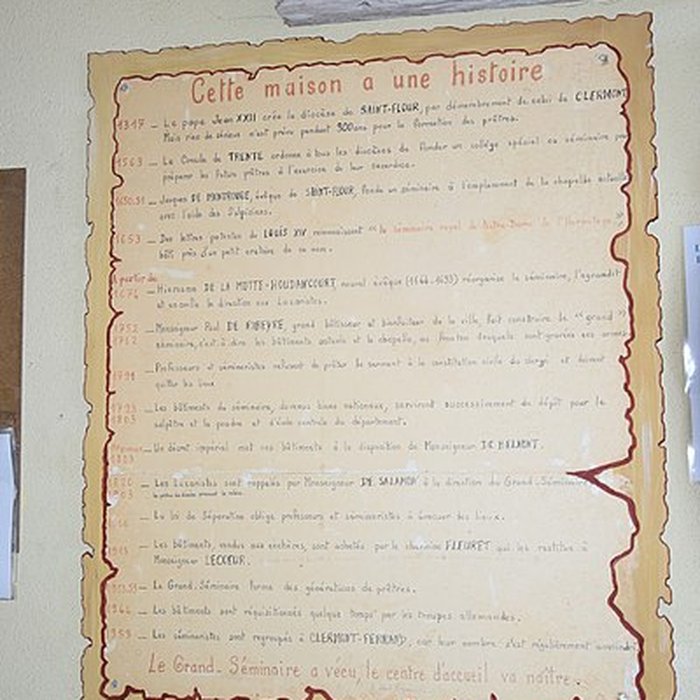 Cette maison a une histoire
1317 _ Le pape Jean XXII crée le diocèse de SAINT-FLOUR, par démembrement de celui de CLERMONT
Mais rien de sérieux n'est prévu pendant 300 ans pour la formation des prêtres.
1563 _ Le Concile de TRENTE ordonne à tous les diocèses de fonder un collège spécial ou séminaire pour
préparer les futurs prêtres à l'exercice de leur sacerdoce.
1650.51 _ Jacques DE MONTROUGE, évêque de SAINT-FLOUR, fonde un séminaire à l'emplacement de la chapelle actuelle
avec l'aide des Sulpiciens.
1653 _ Des lettres patentes de LOUIS XIV reconnaissent "le Séminaire royal de Notre-Dame de
bâti près d'un petit oratoire de ce nom.
A partir de
1674 _ Hierosme DE LA MOTTE-HOUDANCOURT, nouvel évêque (1664-1693) réorganise le séminaire, l'agrandit
et en confie la direction aux Lazaristes.
1752 _ Monseigneur Paul DE RIBEYRE, grand bâtisseur et bienfaiteur de la ville, fait construire le "grand"
1762 séminaire, c'est à dire les bâtiments actuels et la chapelle, au fronton desquels sont gravées ses armes
1791 _ Professeurs et séminaristes refusent de prêter le serment à la constitution civile du clergé et doivent
quitter les lieux
1793 _ Les bâtiments du séminaire, devenus biens nationaux, serviront successivement de dépôt pour le
1803 salpêtre et la poudre et d'école centrale du département.
_ Un décret impérial met ces bâtiments à la disposition de Monseigneur DE BELMONT.
1820 _ Les Lazaristes sont rappelés par Monseigneur DE SALAMON à la direction du Grand-Séminaire
1903
_ La loi de Séparation oblige professeurs et séminaristes à évacuer les lieux.
_ Les bâtiments, vendus aux enchères, sont achetés par le chanoine FLEURET qui les restitue à
Monseigneur LECOEUR.
_ Le Grand-Séminaire forme des générations de prêtres.
1944 _ Les bâtiments sont réquisitionnés quelque temps par les troupes allemandes.
1959 _ Les séminaristes sont regroupés à CLERMONT-FERRAND, car leur nombre s'est régulièrement amoindri
Le Grand-Séminaire a vécu, le centre d'accueil va naître..